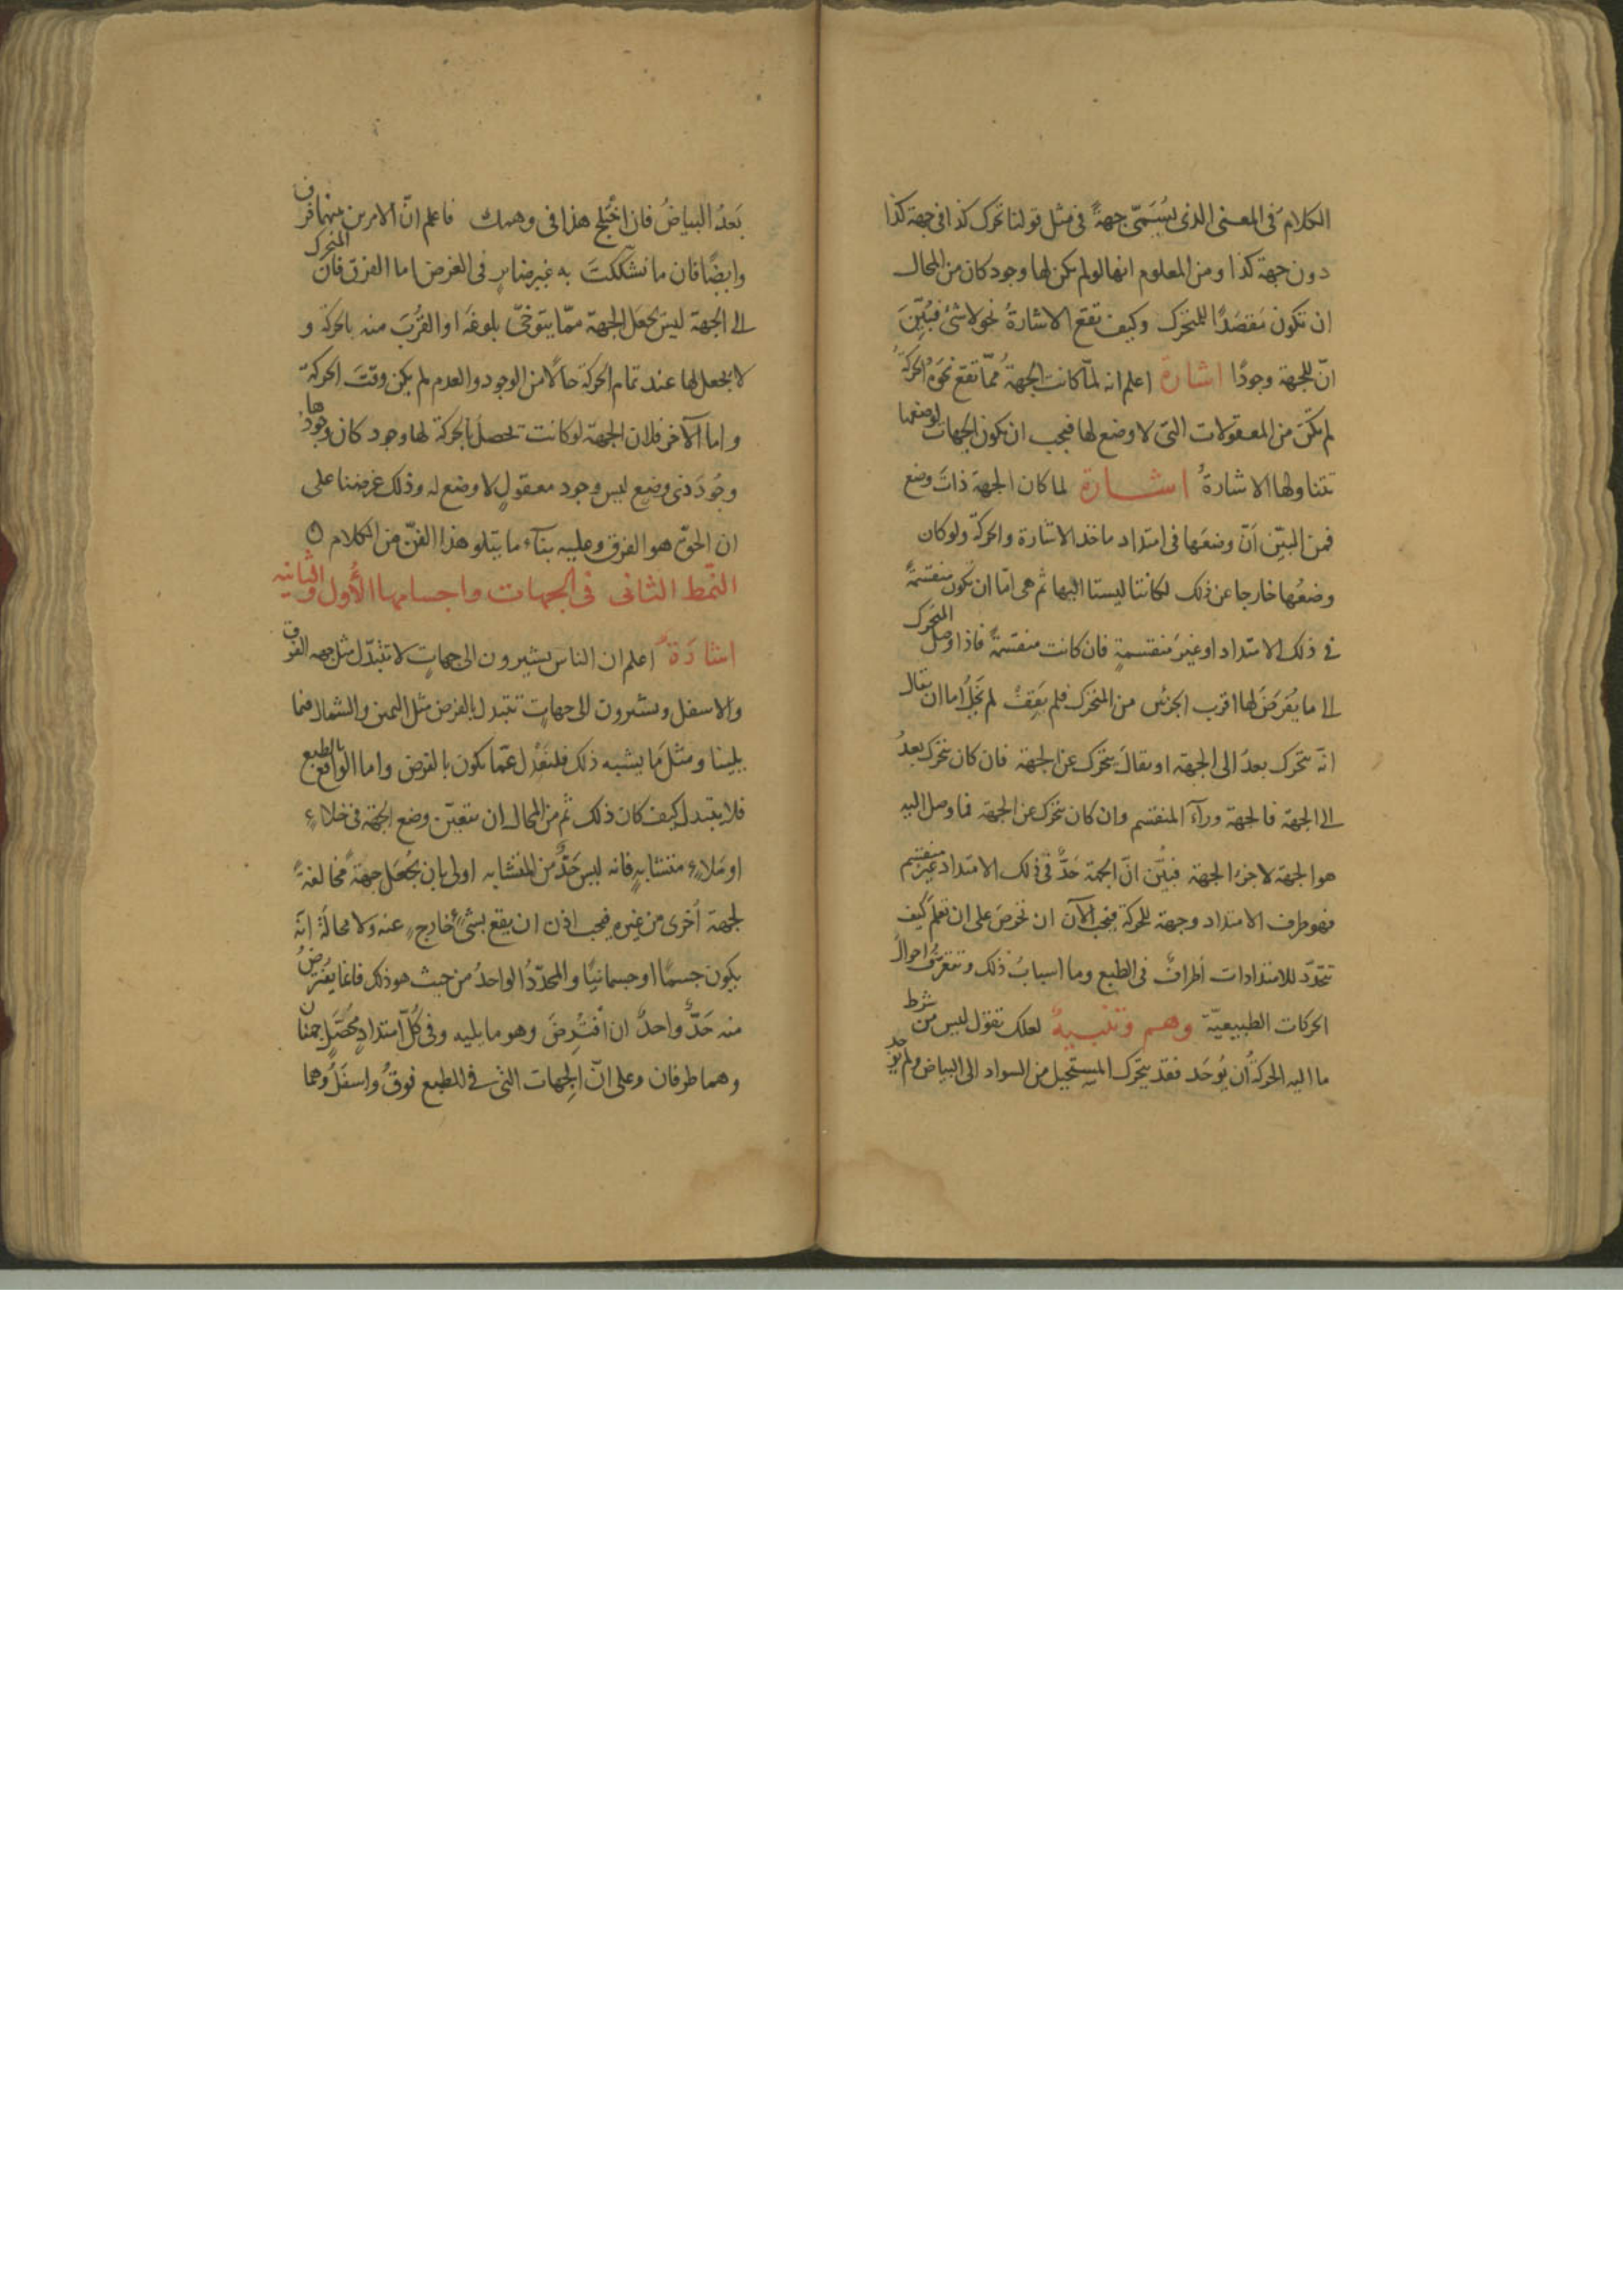 الكلامَ فى المعنى الذى يُسَمّى جهةً فى مثل قولنا تحرك كذا فى جهة كذا
دون جهة كذا ومن المعلوم انها لو لم يكن لها وجود كان من المحال
ان تكون مَقصَدًا للمتحرك وكيف تقع الاشارةُ نحو لا شئ فبُيِّنَ
انّ للجهة وجودًا اشارة اعلم انه لمّا كانت الجهةُ ممّا تقع نحوَه الحركةُ
لم يكن من المعقولات التى لا وضع لها فيجب ان يكون الجهات لوضعها
تتناولها الاشارةُ اشارة لما كان الجهة ذاتَ وضع
فمن البيِّن انّ وضعَها فى امتداد ماخذ الاشارة والحركة ولو كان
وضعُها خارجا عن ذلك لكانتا ليستا اليها ثم هى امّا ان يكون منقسمةً
فى ذلك الامتداد او غيرَ منقسمةٍ فان كانت منقسمةً فاذا وصل المتحرك
الى ما يُفرَضُ لها اقرب الجزئين من المتحرك فلم يَقِفْ لم يَخلُ اما ان يقال
انّه يتحرك بعدُ الى الجهة او يقالَ يتحرك عن الجهة فان كان يتحرك بعدُ
الى الجهة فالجهة ورآءَ المنقسم وان كان يتحرك عن الجهة فما وصل اليه
هو الجهة لا جزءُ الجهة فبُيّن انّ الجهة حَدٌّ فى ذلك الامتداد غير منقسم
فهو طرف الامتداد وجهة للحركة فيجب الآن ان تحرِصَ على ان تعلمَ كيف
تتحدّد للامتدادات أطرافٌ فى الطبع وما اسبابُ ذلك وتتعرّفَ احوالَ
الحركات الطبيعيّة وهم وتنبيهٌ لعلك تقول ليس من شرط
ما اليه الحركةُ أن يُوجَد فقد يتحرك المستحيل من السواد الى البياض ولم يوجد
بَعدُ البياضُ فان اختلج هذا فى وهمك فاعلم انّ الامرين بينهما فرق
وايضًا فان ما تشككتَ به غير ضاير فى الغرض اما الفرق فانّ المتحرك
الى الجهة ليس يجعل الجهة ممّا يتوخّى بلوغَه او القُربَ منه بالحركة و
لا يجعل لها عند تمام الحركة حالًا من الوجود والعدم لم يكن وقتَ الحركة
واما الآخر فلان الجهة لو كانت تحصلُ بالحركة لها وجود كان وجودها
وجُودَ ذى وضع ليس وجود معقولٍ لا وضع له وذلك غرضنا على
ان الحقّ هو الفرق وعليه بناء ما يتلو هذا الفنّ من الكلام
النّمط الثانى فى الجهات واجسامها الأُول والثانيه
اشارَةٌ اعلم ان الناس يشيرون الى جهاتٍ لا تتبدّل مثل جهة الفوق
والاسفل ويشيرون الى جهات تتبدل بالفرض مثل اليمين والشمال فيما
يلينا ومثلَ ما يشبه ذلك فلنَعْدِل عمّا يكون بالفرض واما الواقع بالطبع
فلا يتبدل كيف كان ذلك ثُم من المحال ان يتعيّن وضع الجهة فى خلاءٍ
او مَلاءٍ متشابهٍ فانه ليس حَدٌّ من المتشابه اولى بان يُجعَل جهةً مخالفةً
لجهة أخرى من غيره فيجب اذن ان يقع بشئٍ خارجٍ عنه ولا محالةَ انّه
يكون جسمًا او جسمانيًا والمحدّدُ الواحدُ من حيث هو ذلك فانما يفترضُ
منه حَدٌّ واحدٌ ان افتُرِضَ وهو ما يليه وفى كُلّ امتدادٍ يحصل جهتان
وهما طرفان وعلى انّ الجهات التى فى للطبع فوقُ واسفلُ وهما